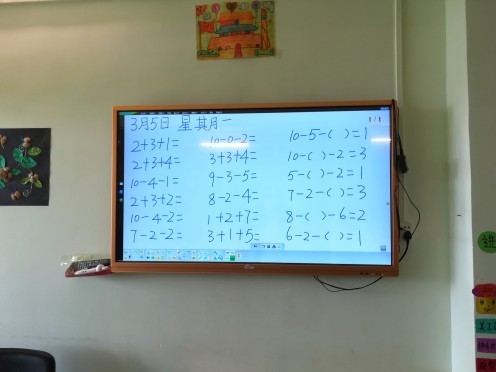 3月5日 星期一
2+3+1= 10-0-2= 10-5-( )=1
2+3+4= 3+3+4= 10-( )-2=3
10-4-1= 9-3-5= 5-( )-2=1
2+3+2= 8-2-4= 7-2-( )=3
10-4-2= 1+2+7= 8-( )-6=2
7-2-2= 3+1+5= 6-2-( )=1